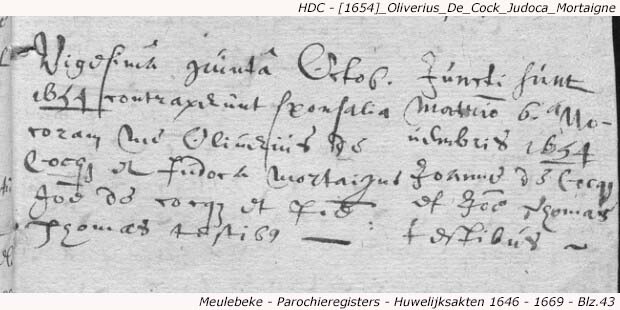 HDC - [1654]_Oliverius_De_Cock_Judoca_Mortaigne
Vigesima quinta Octob.
1654 contraxerunt sponsalia
coram me Oliverius de
Cocq et Judoca Mortaigne
Joē de cocq et
Thomas testib9
Juncti sunt
Matrio 6.a No-
uembris 1654
Joanne de Cocq
et Joē Thomas
testibus
Meulebeke - Parochieregisters - Huwelijksakten 1646 - 1669 - Blz.43